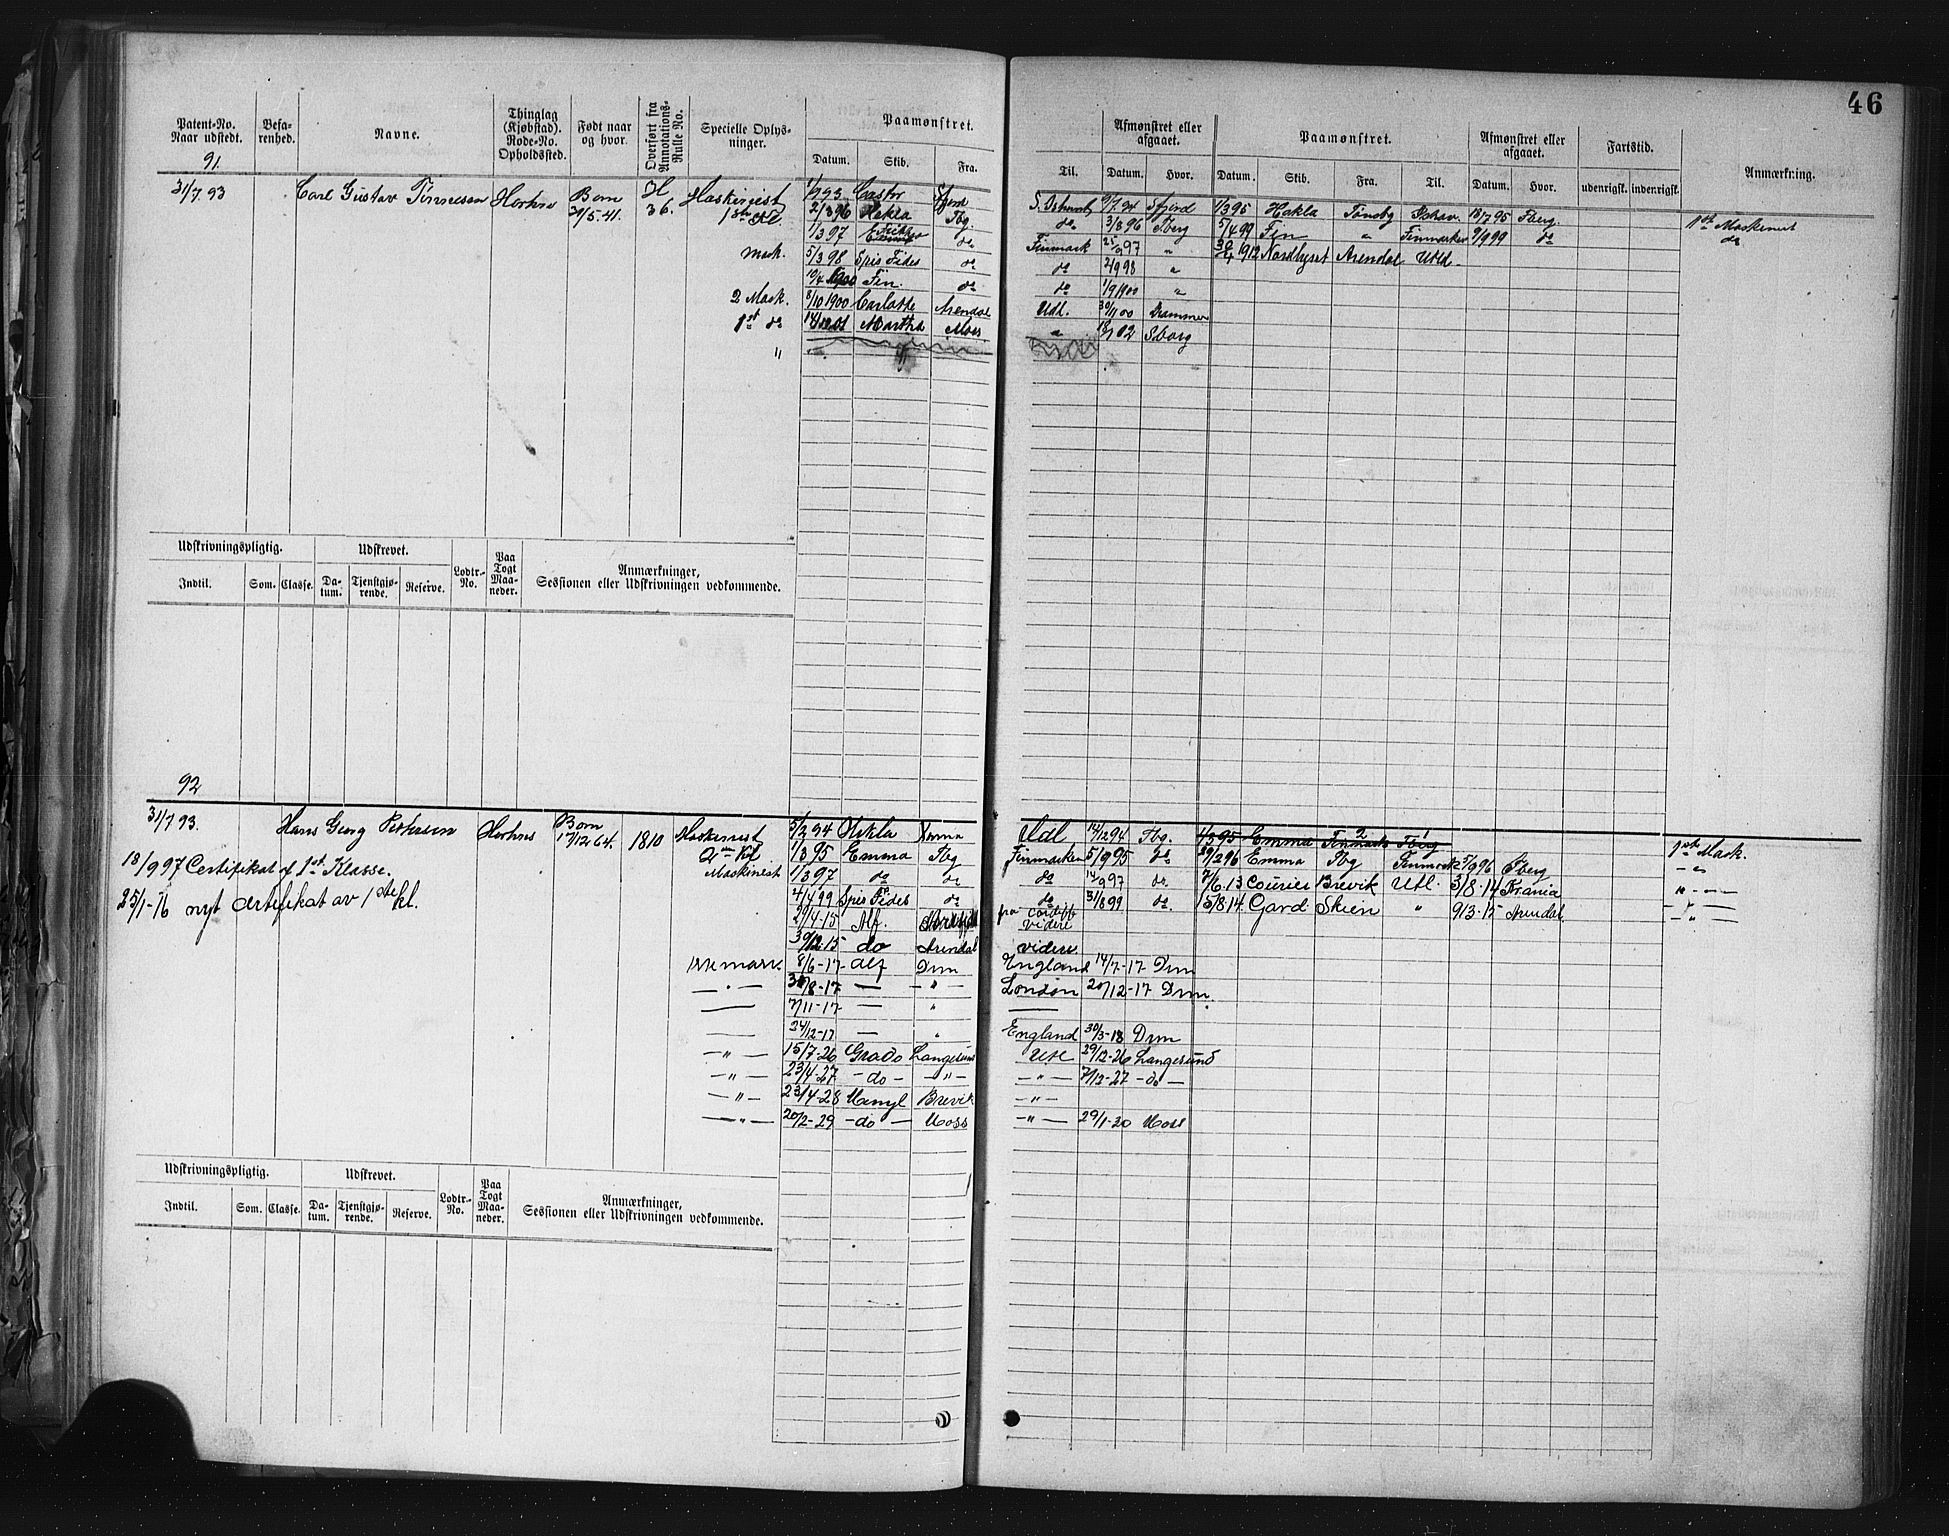 46
Patent-No. Naar udstedt. Befarenhed. Navne. Thinglag (Kjøbstad). Rode-No. Opholdssted. Født naar og hvor. Overført fra Annotations-Rulle No. Specielle Oplysninger. Paamønstret. Datum. Skib. Fra.
Til. Afmønstret eller afgaaet. Datum. Hvor. Paamønstret. Datum. Skib. Fra. Til. Afmønstret eller afgaaet. Datum. Hvor. Fartstid. udenrigsk. indenrigsk. Anmærkning.
91
31/7 93 Carl Gustav Tønnesen Born H 36. Maskinist 1ste Kl. Castor
9/7 94 1/3 95 Hekla Tønsbg 18/7 95 Tberg. 1ste Maskinist
2/3 96 Hekla Tbg. do 3/8 96 Tberg 5/4 99 Fin " Finmarken 9/9 99 do do
30/5 41.
1/3 97 do Finmark 25/9 97 " 1912 Nordlyset Arendal Utld
Mask. 5/3 98 Spes Fides do do 2/9 98 "
10/4 1900 Fin. do do 1/9 1900 "
2 Mask. 8/10 1900 Carlotte Arendal Udl. 30/11 00 Drammen
1st do Martha Moss " 02 Sborg
"
Udskrivningspligtig. Udskrevet. Lodtr.-No. Paa Togt Maaneder. Anmærkninger, Sessionen eller Udskrivningen vedkommende.
Indtil. Som. Classe. Datum. Tjenstgjørende. Reserve.
92
31/7 93. Hans Georg Pettersen Born 17/12 64. 1810 Maskinist 2den Kl 5/2 94 Hekla Udl 14/12 94 Tbg. 4/3 95 Emma Finmark Tberg 1ste Mask.
18/9 97 Certifikat af 1ste Klasse. 1/3 95 Emma Tbg Finmarken 5/9 95 do 29/2 96 Emma Tbg Finmark 5/9 96 Tberg
Maskinist 1/3 97 do do do 14/9 97 do 7/6 13 Courier Brevik Utl. 3/8-14 Kr.ania
25/1-16 nyt certifikat av 1ste kl. 4/4 99 Spes Fides do do 31/8 99 do. 15/8 14 Gard Skien " 9/3-15 Arendal
29/4-15 Alf. fra Cardiff videre
30/12-15 do Arendal videre
8/6-17 Alf Drm England 14/7-17 Drm
30/8-17 — " London 20/12-17 Drm.
7/11-17 — " —
24/12-17 — " England 30/3-18 Drm
— " — 15/7-26 Grado Langesund Utl 29/12-26 Langesund
— " — 23/4-27 — do — — " — — " — 7/12-27 — do —
— " — 23/4-28 Vamyl Brevik — " —
— " — 20/2-29 — do — Moss — " — 29/1-30 Moss
Udskrivningspligtig. Udskrevet. Lodtr.-No. Paa Togt Maaneder. Anmærkninger, Sessionen eller Udskrivningen vedkommende.
Indtil. Som. Classe. Datum. Tjenstgjørende. Reserve.